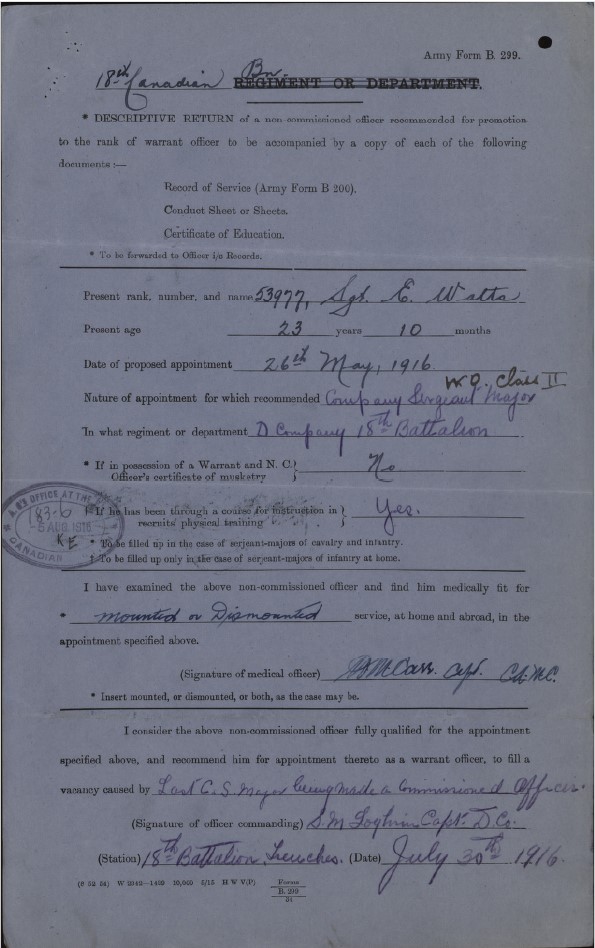 Army Form B. 299.
18th Canadian Bn. REGIMENT OR DEPARTMENT.
* DESCRIPTIVE RETURN of a non-commissioned officer recommended for promotion
to the rank of warrant officer to be accompanied by a copy of each of the following
documents :—
Record of Service (Army Form B 200).
Conduct Sheet or Sheets.
Certificate of Education.
* To be forwarded to Officer i/c Records.
Present rank, number, and name 53977, Sgt. E. Watts
Present age 23 years 10 months
Date of proposed appointment 26th May, 1916.
W.O. Class II
Nature of appointment for which recommended Company Sergeant Major
In what regiment or department D Company 18th Battalion
* If in possession of a Warrant and N. C. Officer's certificate of musketry } No
† If he has been through a course for instruction in recruits' physical training } Yes.
* To be filled up in the case of serjeant-majors of cavalry and infantry.
† To be filled up only in the case of serjeant-majors of infantry at home.
OFFICE AT THE
83-6
5 AUG 1916
KE
CANADIAN
I have examined the above non-commissioned officer and find him medically fit for
* mounted or Dismounted service, at home and abroad, in the
appointment specified above.
(Signature of medical officer) Carr. Capt. C.A.M.C.
* Insert mounted, or dismounted, or both, as the case may be.
I consider the above non-commissioned officer fully qualified for the appointment
specified above, and recommend him for appointment thereto as a warrant officer, to fill a
vacancy caused by Last C.S. Major being made a Commissioned Officer.
(Signature of officer commanding) S.M. Loghrin Capt. D Co.
(Station) 18th Battalion Trenches. (Date) July 30th 1916.
(6 32 54) W 2342—1499 10,000 5/15 H W V(P) Forms
B. 299